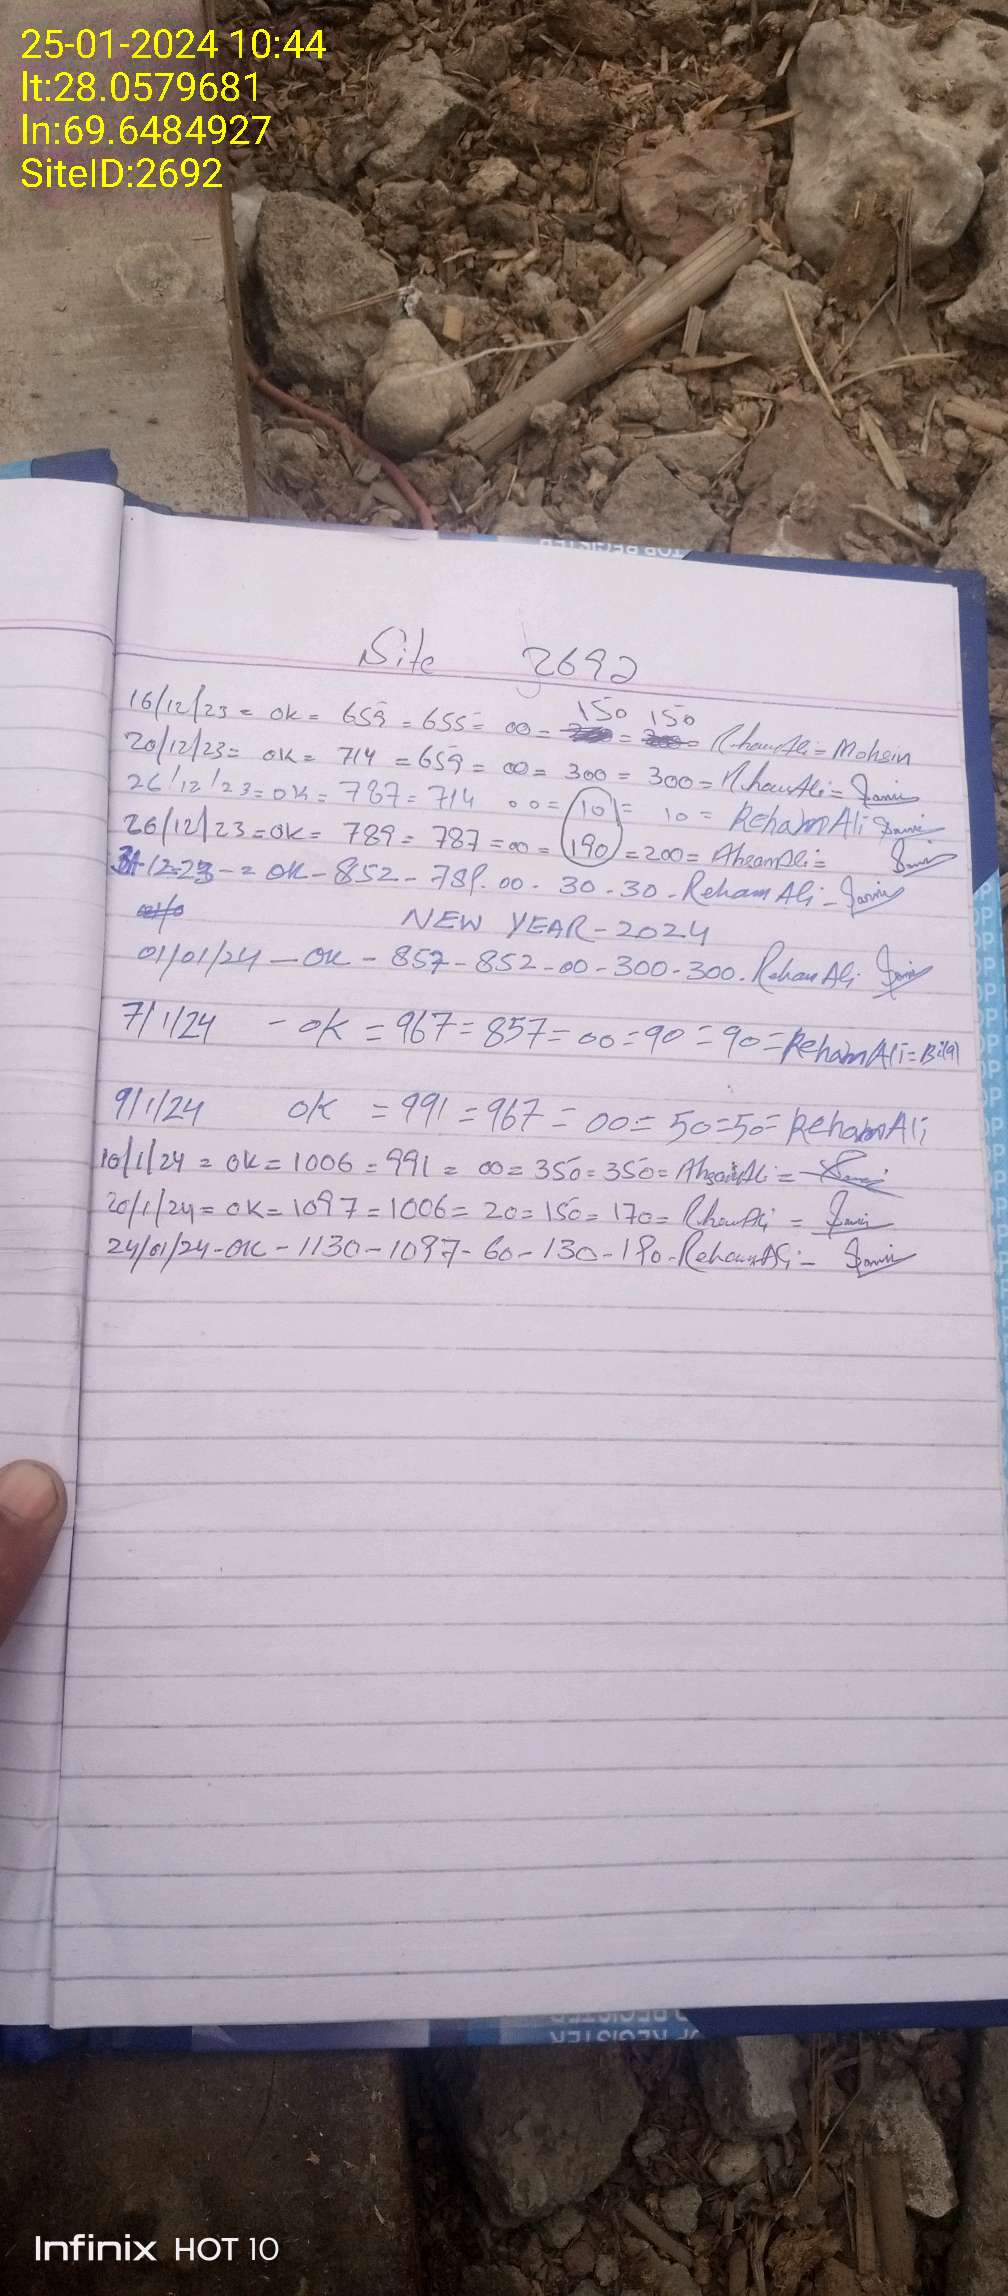 25-01-2024 10:44
lt:28.0579681
ln:69.6484927
SiteID:2692
TOP REGISTER
Site 2692
150 150
16/12/23 = OK = 659 = 655 = 00 = = Mohsin
20/12/23 = OK = 714 = 659 = 00 = 300 = 300 =
26/12/23 = OK = 787 = 714 00 = 10 = 10 = Reham Ali
26/12/23 = OK = 789 = 787 = 00 = 190 = 200 = Ahsan Ali =
31-12-23 - = OK - 852 - 789. 00 - 30 - 30 - Reham Ali -
NEW YEAR - 2024
01/01/24 - OK - 857 - 852 - 00 - 300 - 300. Reham Ali
7/1/24 - OK = 967 = 857 = 00 = 90 = 90 = Reham Ali = Bilal
9/1/24 OK = 991 = 967 = 00 = 50 = 50 = Reham Ali
10/1/24 = OK = 1006 = 991 = 00 = 350 = 350 = Ahsan Ali =
20/1/24 = OK = 1097 = 1006 = 20 = 150 = 170 = =
24/01/24 - OK - 1130 - 1097 - 60 - 130 - 190 - Reham Ali -
Infinix HOT 10